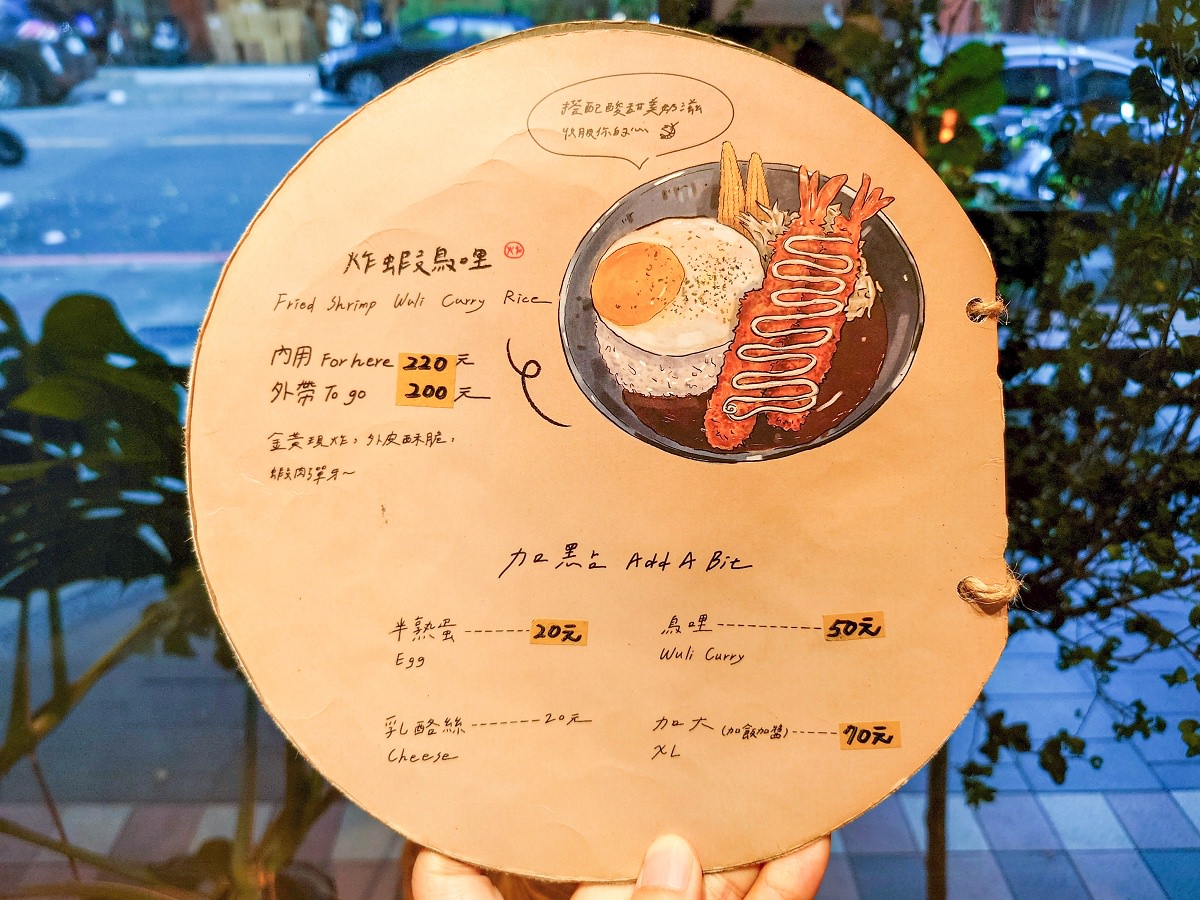 搭配酸甜美奶滋
收服你的心
炸蝦烏哩 炸
Fried Shrimp Wuli Curry Rice
內用 For here 220元
外帶 To go 200元
金黃現炸，外皮酥脆，
蝦肉彈牙~
加點 Add A Bit
半熟蛋------20元
Egg
烏哩----------50元
Wuli Curry
乳酪絲-------20元
Cheese
加大(加飯加醬)-----70元
XL